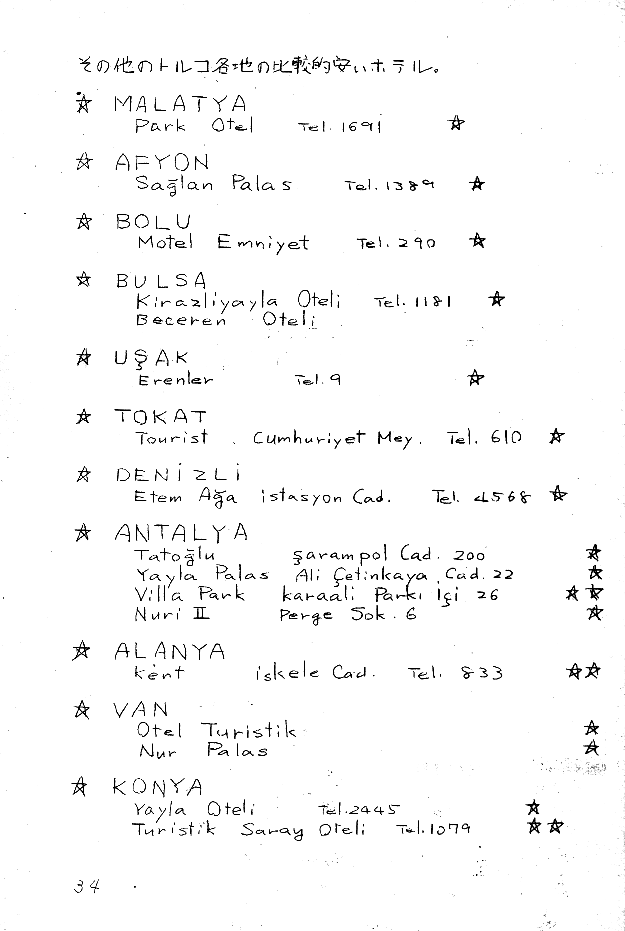 その他のトルコ各地の比較的安いホテル。
☆ MALATYA
Park Otel Tel. 1691 ☆
☆ AFYON
Sağlan Palas Tel. 1389 ☆
☆ BOLU
Motel Emniyet Tel. 290 ☆
☆ BULSA
Kirazliyayla Oteli Tel. 1181 ☆
Beceren Oteli
☆ UŞAK
Erenler Tel. 9 ☆
☆ TOKAT
Tourist . Cumhuriyet Mey. Tel. 610 ☆
☆ DENİZLİ
Etem Ağa istasyon Cad. Tel. 4568 ☆
☆ ANTALYA
Tatoğlu şarampol Cad. 200 ☆
Yayla Palas Ali Çetinkaya Cad. 22 ☆
Villa Park karaali Parkı İçi 26 ☆☆
Nuri II Perge Sok. 6 ☆
☆ ALANYA
Kent iskele Cad. Tel. 833 ☆☆
☆ VAN
Otel Turistik ☆
Nur Palas ☆
☆ KONYA
Yayla Oteli Tel. 2445 ☆
Turistik Saray Oteli Tel. 1079 ☆☆
34